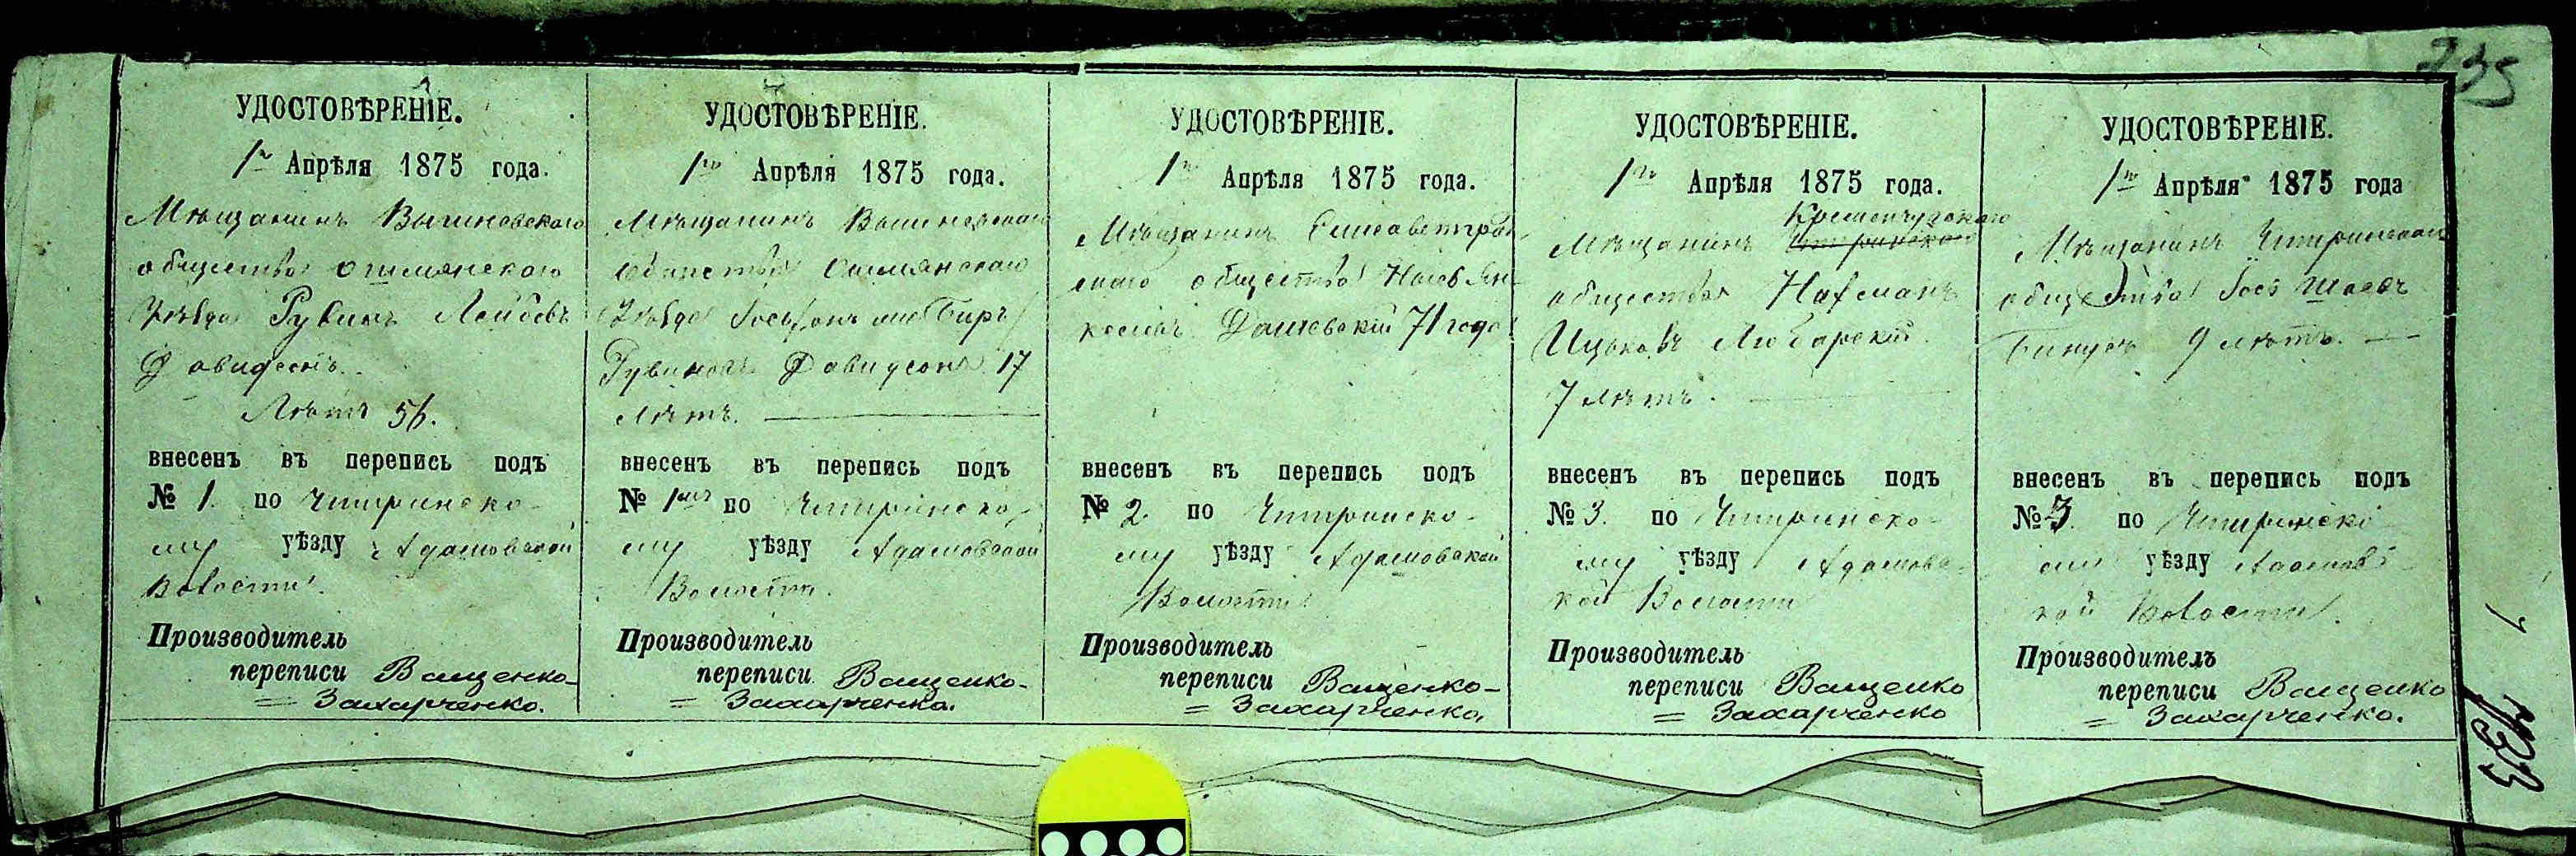 235
УДОСТОВѢРЕНІЕ.
1го Апрѣля 1875 года.
Мѣщанинъ
общества Ошмянскаго
Уѣзда Рувинъ Лейбовъ
Давидсонъ.
Лѣтъ 56.
внесенъ въ перепись подъ
№ 1. по Чигиринско-
му уѣзду Адамовской
Волости.
Производитель
переписи Ващенко-
= Захарченко.
УДОСТОВѢРЕНІЕ.
1го Апрѣля 1875 года.
Мѣщанинъ
общества Ошмянскаго
Уѣзда
Рувиновъ Давидсонъ 17
Лѣтъ.
внесенъ въ перепись подъ
№ 1мъ по Чигиринско-
му уѣзду Адамовской
Волости.
Производитель
переписи Ващенко-
= Захарченко.
УДОСТОВѢРЕНІЕ.
1го Апрѣля 1875 года.
Мѣщанинъ Елисаветград-
скаго общества
71 года
внесенъ въ перепись подъ
№ 2. по Чигиринско-
му уѣзду Адамовской
Волости
Производитель
переписи Ващенко-
= Захарченко.
УДОСТОВѢРЕНІЕ.
1го Апрѣля 1875 года.
Кременчугскаго
Мѣщанинъ Чигиринскаго
общества Нафманъ
Ицьковъ Любарскій
7 лѣтъ.
внесенъ въ перепись подъ
№ 3. по Чигиринско-
му уѣзду Адамовс-
кой Волости
Производитель
переписи Ващенко
= Захарченко
УДОСТОВѢРЕНІЕ.
1го Апрѣля 1875 года
Мѣщанинъ Чигиринскаго
общества
9 лѣтъ.
внесенъ въ перепись подъ
№ 3. по Чигиринско
му уѣзду Адамовс-
кой Волости.
Производитель
переписи Ващенко
= Захарченко.